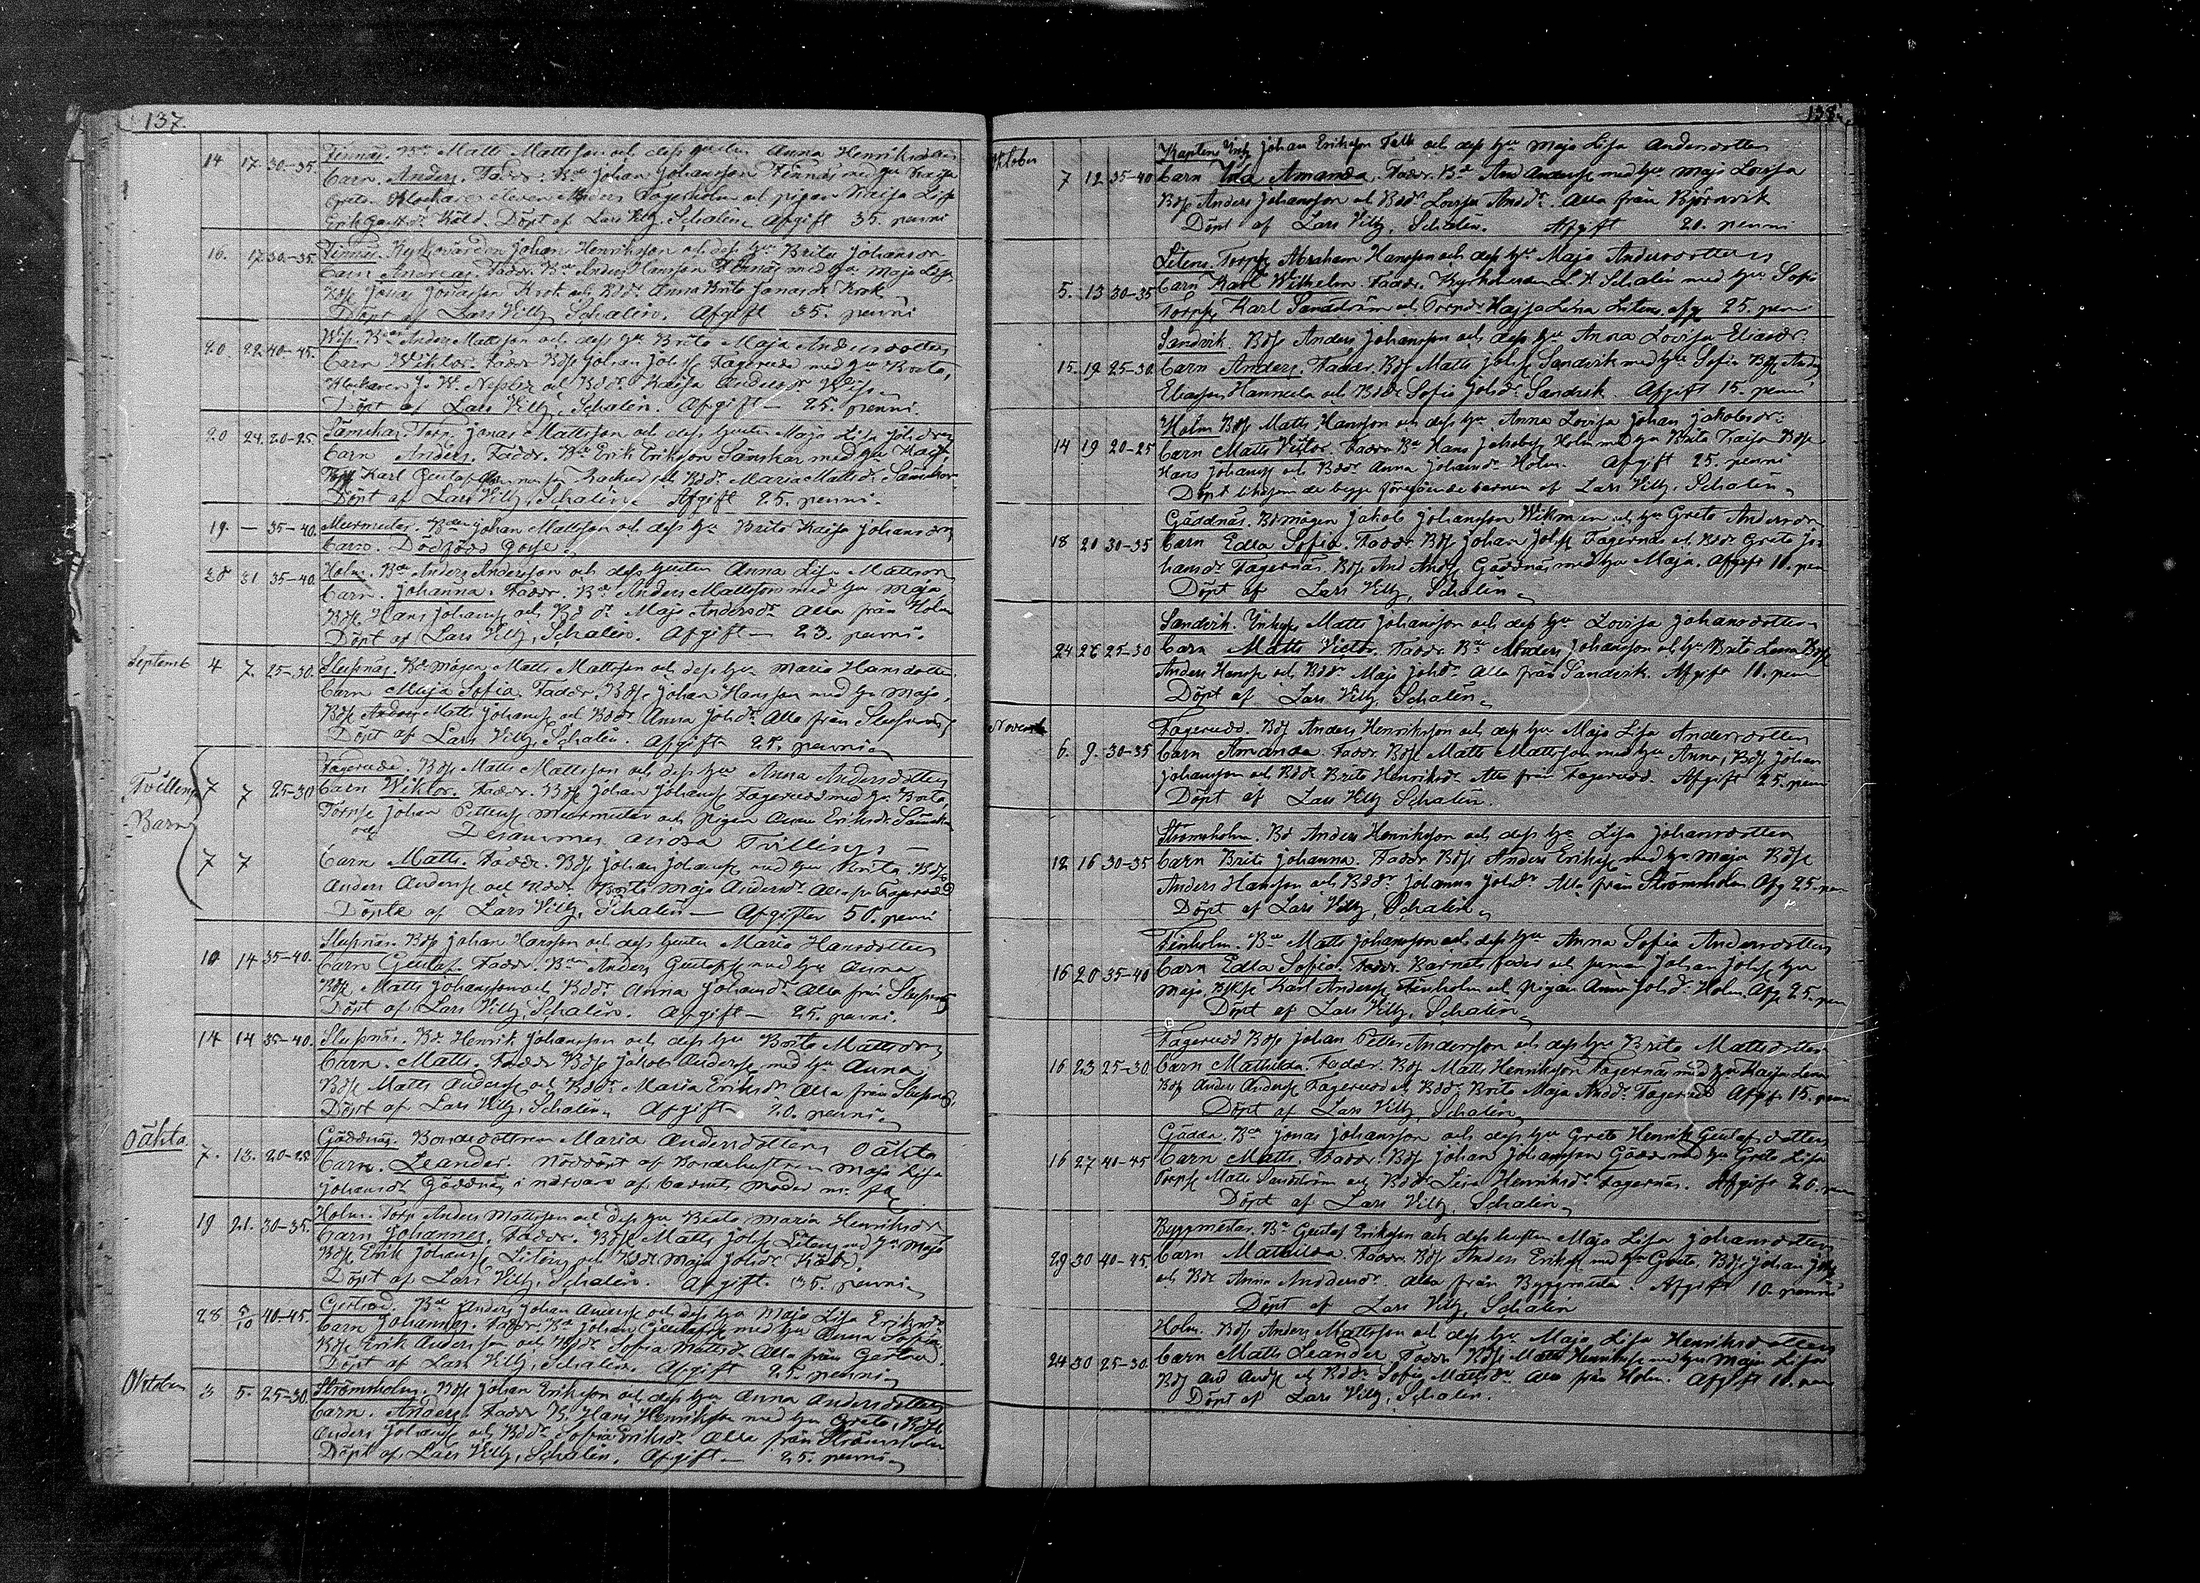 137.
14 17 30-35. Finnäs. Bde Matts Mattsson och dess hustru Anna Henriksdotter
Barn Anders. Faddr. Bde Johan Johansson Finnäs med hu Kaisa
Greta. Klockare eleven Anders Fagerholm och pigan Kaisa Lisa
Erik Gust.dr Köld. Döpt af Lars Vilh. Schalin. Afgift 35. penni
16. 17 30-35. Finnäs. Kyrkovärden Johan Henriksson och dess hu Brita Johansdr
Barn Andreas. Faddr. Bde Anders Hansson Finnäs med hu Maja Lisa,
Bds. Jonas Jonasson Krok och Bddr. Anna Brita Jonasdr Krok
Döpt af Lars Vilh. Schalin. Afgift 35. penni
20. 22 40-45. Bden Anders Mattsson och dess hu Brita Maja Andersdotter
Barn Wiktor. Faddr. Bds. Johan Johss Fagerudd med hu Brita,
Klockaren J. W. och Bddr. Kaisa Andersdr
Döpt af Lars Vilh. Schalin. Afgift — 25. penni.
20 24. 20-25 Sämskar, Torp. Jonas Mattsson och dess hustru Maja Lisa Johsdr
Barn Anders. Faddr. Bde Erik Eriksson Sämskar med hu Kaisa,
Karl Gustaf och Bddr. Maria Mattsdr Sämskar
Döpt af Lars Vilh. Schalin. Afgift 25. penni.
19. — 35-40. Murmester. Bden Johan Mattsson och dess hu Brita Kaisa Johansdr
Barn. Dödfödd Gosse.
28 31 35-40. Holm. Bde Anders Andersson och dess hustru Anna Lisa Mattsdr
Barn. Johanna. Faddr. Bde Anders Mattsson med hu Maja,
Bds. Hans Johanss och Bddr. Maja Andersdr Alla från Holm
Döpt af Lars Vilh. Schalin. Afgift — 23. penni.
Septemb. 4 7. 25-30. Slussnäs. Bdmågen Matts Mattsson och dess hu Maria Hansdotter
Barn Maja Sofia. Faddr. Bds. Johan Hansson med hu Maja,
Bds. Matts Johanss och Bddr. Anna Johsdr. Alla från Slussnäs
Döpt af Lars Vilh. Schalin. Afgift 25. penni
Tvilling
Barn
7 7 25-30 Fagerudd. Bds. Matts Mattsson och dess hu Anna Andersdotter
Barn Wiktor. Faddr. Bds. Johan Johanss Fagerudd med hu Brita,
Torps. Johan Petterss Murmester och pigan Anna Eriksdr Sämskar
och Desammas andra Tvilling —
7 7 Barn Matts. Faddr. Bds. Johan Johanss med hu Brita, Bds.
Anders Anderss och Bddr. Brita Maja Andersdr Alla fr. Fagerudd
Döpta af Lars Vilh. Schalin — Afgifter 50. penni
10 14 35-40. Slussnäs. Bds. Johan Hansson och dess hustru Maria Hansdotter
Barn Gustaf. Faddr. Bden Anders Gustafss med hu Anna
Bds. Matts Johansson och Bddr. Anna Johansdr Alla från Slussnäs
Döpt af Lars Vilh. Schalin. Afgift — 25. penni.
14 14 35-40. Slussnäs. Bd. Henrik Johansson och dess hu Brita Mattsdr
Barn. Matts. Faddr Bds. Jakob Anderss med hu Anna
Bds. Matts Anderss och Bddr. Maria Eriksdr Alla från Slussnäs,
Döpt af Lars Vilh. Schalin. Afgift 20. penni
Oäkta. 7. 13. 20-25 Gäddnäs. Bondedottren Maria Andersdotters Oäkta
Barn. Leander. Nöddöpt af Bondehustrun Maja Lisa
Johansdr Gäddnäs i närvaro af barnets moder
19 21. 30-35. Holm. Torp. Anders Mattsson och dess hu Beata Maria Henriksdr
Barn Johannes. Faddr. Bds. Matts Johss Litens med hu Maja
Bds. Erik Johanss Litens och Bddr. Maja Johsdr Köld.
Döpt af Lars Vilh. Schalin. Afgift. 35. penni
28. 5/10 40-45. Gertrud. Bde Anders Johan Anderss och dess hu Maja Lisa Eriksdr
Barn Johannes. Faddr. Bd Johan Gustafss med hu Anna Sofia
Bds. Erik Andersson och Bddr. Sofia Mattsdr Alla från Gertrud.
Döpt af Lars Vilh. Schalin. Afgift 25. penni
Oktober 3 5. 25-30. Strömsholm. Bds. Johan Eriksson och dess hu Anna Andersdotter
Barn. Anders. Faddr. Bd. Hans Henriksson med hu Greta, Bds.
Anders Johanss och Bddr. Sofia Eriksdr Alla från Strömsholm
Döpt af Lars Vilh. Schalin. Afgift — 25. penni
138.
Oktober Kaptens Inh. Johan Eriksson Falk och dess hu Maja Lisa Andersdotter
7 12 35-40 Barn Ida Amanda. Faddr. Bde And Anderss med hu Maja Lovisa
Bds. Anders Johansson och Bddr. Lovisa Andsdr Alla från Björnvik
Döpt af Lars Vilh. Schalin. Afgift 20. penni
Litens. Torps. Abraham Hansson och dess hu Maja Andersdotter
5. 13 30-35 Barn Karl Wilhelm. Faddr. Kyrkoherden L. V. Schalin med hu Sofia
Torps. Karl Sandström och Torpdr Kajsa Lena Litens. Afg. 25. penni
Sandvik. Bds. Anders Johansson och dess hu Anna Lovisa Eliasdr.
15. 19 25-30. Barn Anders. Faddr. Bds. Matts Johss Sandvik med hu Sofia Bds. Anders
Eliasson Hannula och Bddr Sofia Johsdr Sandvik. Afgift 15. penni
Holm Bds Matts Hansson och dess hu Anna Lovisa Johan Jakobsdr.
14 19 20-25 Barn Matts Viktor. Faddr. Bd Hans Jakobss Holm med hu Brita Kaisa Bds.
Hans Johanss och Bddr. Anna Johansdr Holm. Afgift 25. penni
Döpt liksom de begge föregående barnen af Lars Vilh. Schalin
Gäddnäs. Bdmågen Jakob Johansson Wikman och hu Greta Andersdr
18 20 30-35 Barn Edla Sofia. Faddr. Bds Johan Johss Fagernäs och Bddr Greta Jo-
hansdr Fagernäs. Bds. And Andss Gäddnäs med hu Maja. Afgift 10. pen
Döpt af Lars Vilh. Schalin
Sandvik. Inhys Matts Johansson och dess hu Lovisa Johansdotter
24 26 25-30 Barn Matts Victor. Faddr. Bde Anders Johansson och hu Brita Lena Bds.
Anders Hanss och Bddr Maja Johdr. Alla från Sandvik. Afgift 10. penn
Döpt af Lars Vilh. Schalin
Novemb. Fagerudd. Bds Anders Henriksson och dess hu Maja Lisa Andersdotter
6. 9. 30-35 Barn Amanda. Faddr. Bds. Matts Mattsson med hu Anna, Bds Johan
Johansson och Bddr Brita Henriksdr Alla från Fagerudd. Afgift 25. penn
Döpt af Lars Vilh. Schalin.
Strömsholm. Bd Anders Henriksson och dess hu Lisa Johansdotter
12 16 30-35 Barn Brita Johanna. Faddr Bds Anders Erikss med hu Maja Bds
Anders Hansson och Bddr. Johanna Johdr. Alla från Strömsholm Afg 25. pen
Döpt af Lars Vilh. Schalin
Finholm. Bde Matts Johansson och dess hu Anna Sofia Andersdotter
16 20 35-40 Barn Edla Sofia. Faddr. Barnets fader och Johan Johss hu
Maja, Bds Karl Anderss Finholm och pigan Anna Johsdr Holm. Afg 25. pen
Döpt af Lars Vilh. Schalin
Fagerudd Bds. Johan Petter Andersson och dess hu Brita Mattsdotter
16 23 25-30 Barn Mathilda. Faddr. Bds Matts Henriksson Fagernäs med hu Kaisa Lena
Bds Anders Anderss Fagerudd och Bddr. Brita Maja Andsdr Fagerudd Afgift 15. penn
Döpt af Lars Vilh. Schalin
Gädda. Bde Jonas Johansson och dess hu Greta Henrik Gustafsdotter
16 27 40-45 Barn Matts. Faddr. Bds. Johan Johansson Gädda med hu Greta Lisa
Torps Matts Sandström och Bddr Lisa Henriksdr Fagernäs. Afgift 20. pen
Döpt af Lars Vilh. Schalin
Byggmestar. Bde Gustaf Eriksson och dess hustru Maja Lisa Johansdotter
29 30 40-45 Barn Mathilda. Faddr. Bds. Anders Erikss med hu Greta, Bds Johan Johss
och Bddr Anna Andersdr. Alla från Byggmestar. Afgift 10. penni
Döpt af Lars Vilh. Schalin
Holm. Bds Anders Mattsson och dess hu Maja Lisa Henriksdotter
24 30 25-30. Barn Matts Leander. Faddr. Bds. Matts Henrikss med hu Maja Lisa
Bds And Andss och Bddr. Sofia Mattsdr Alla från Holm. Afgift 10. pen
Döpt af Lars Vilh. Schalin.